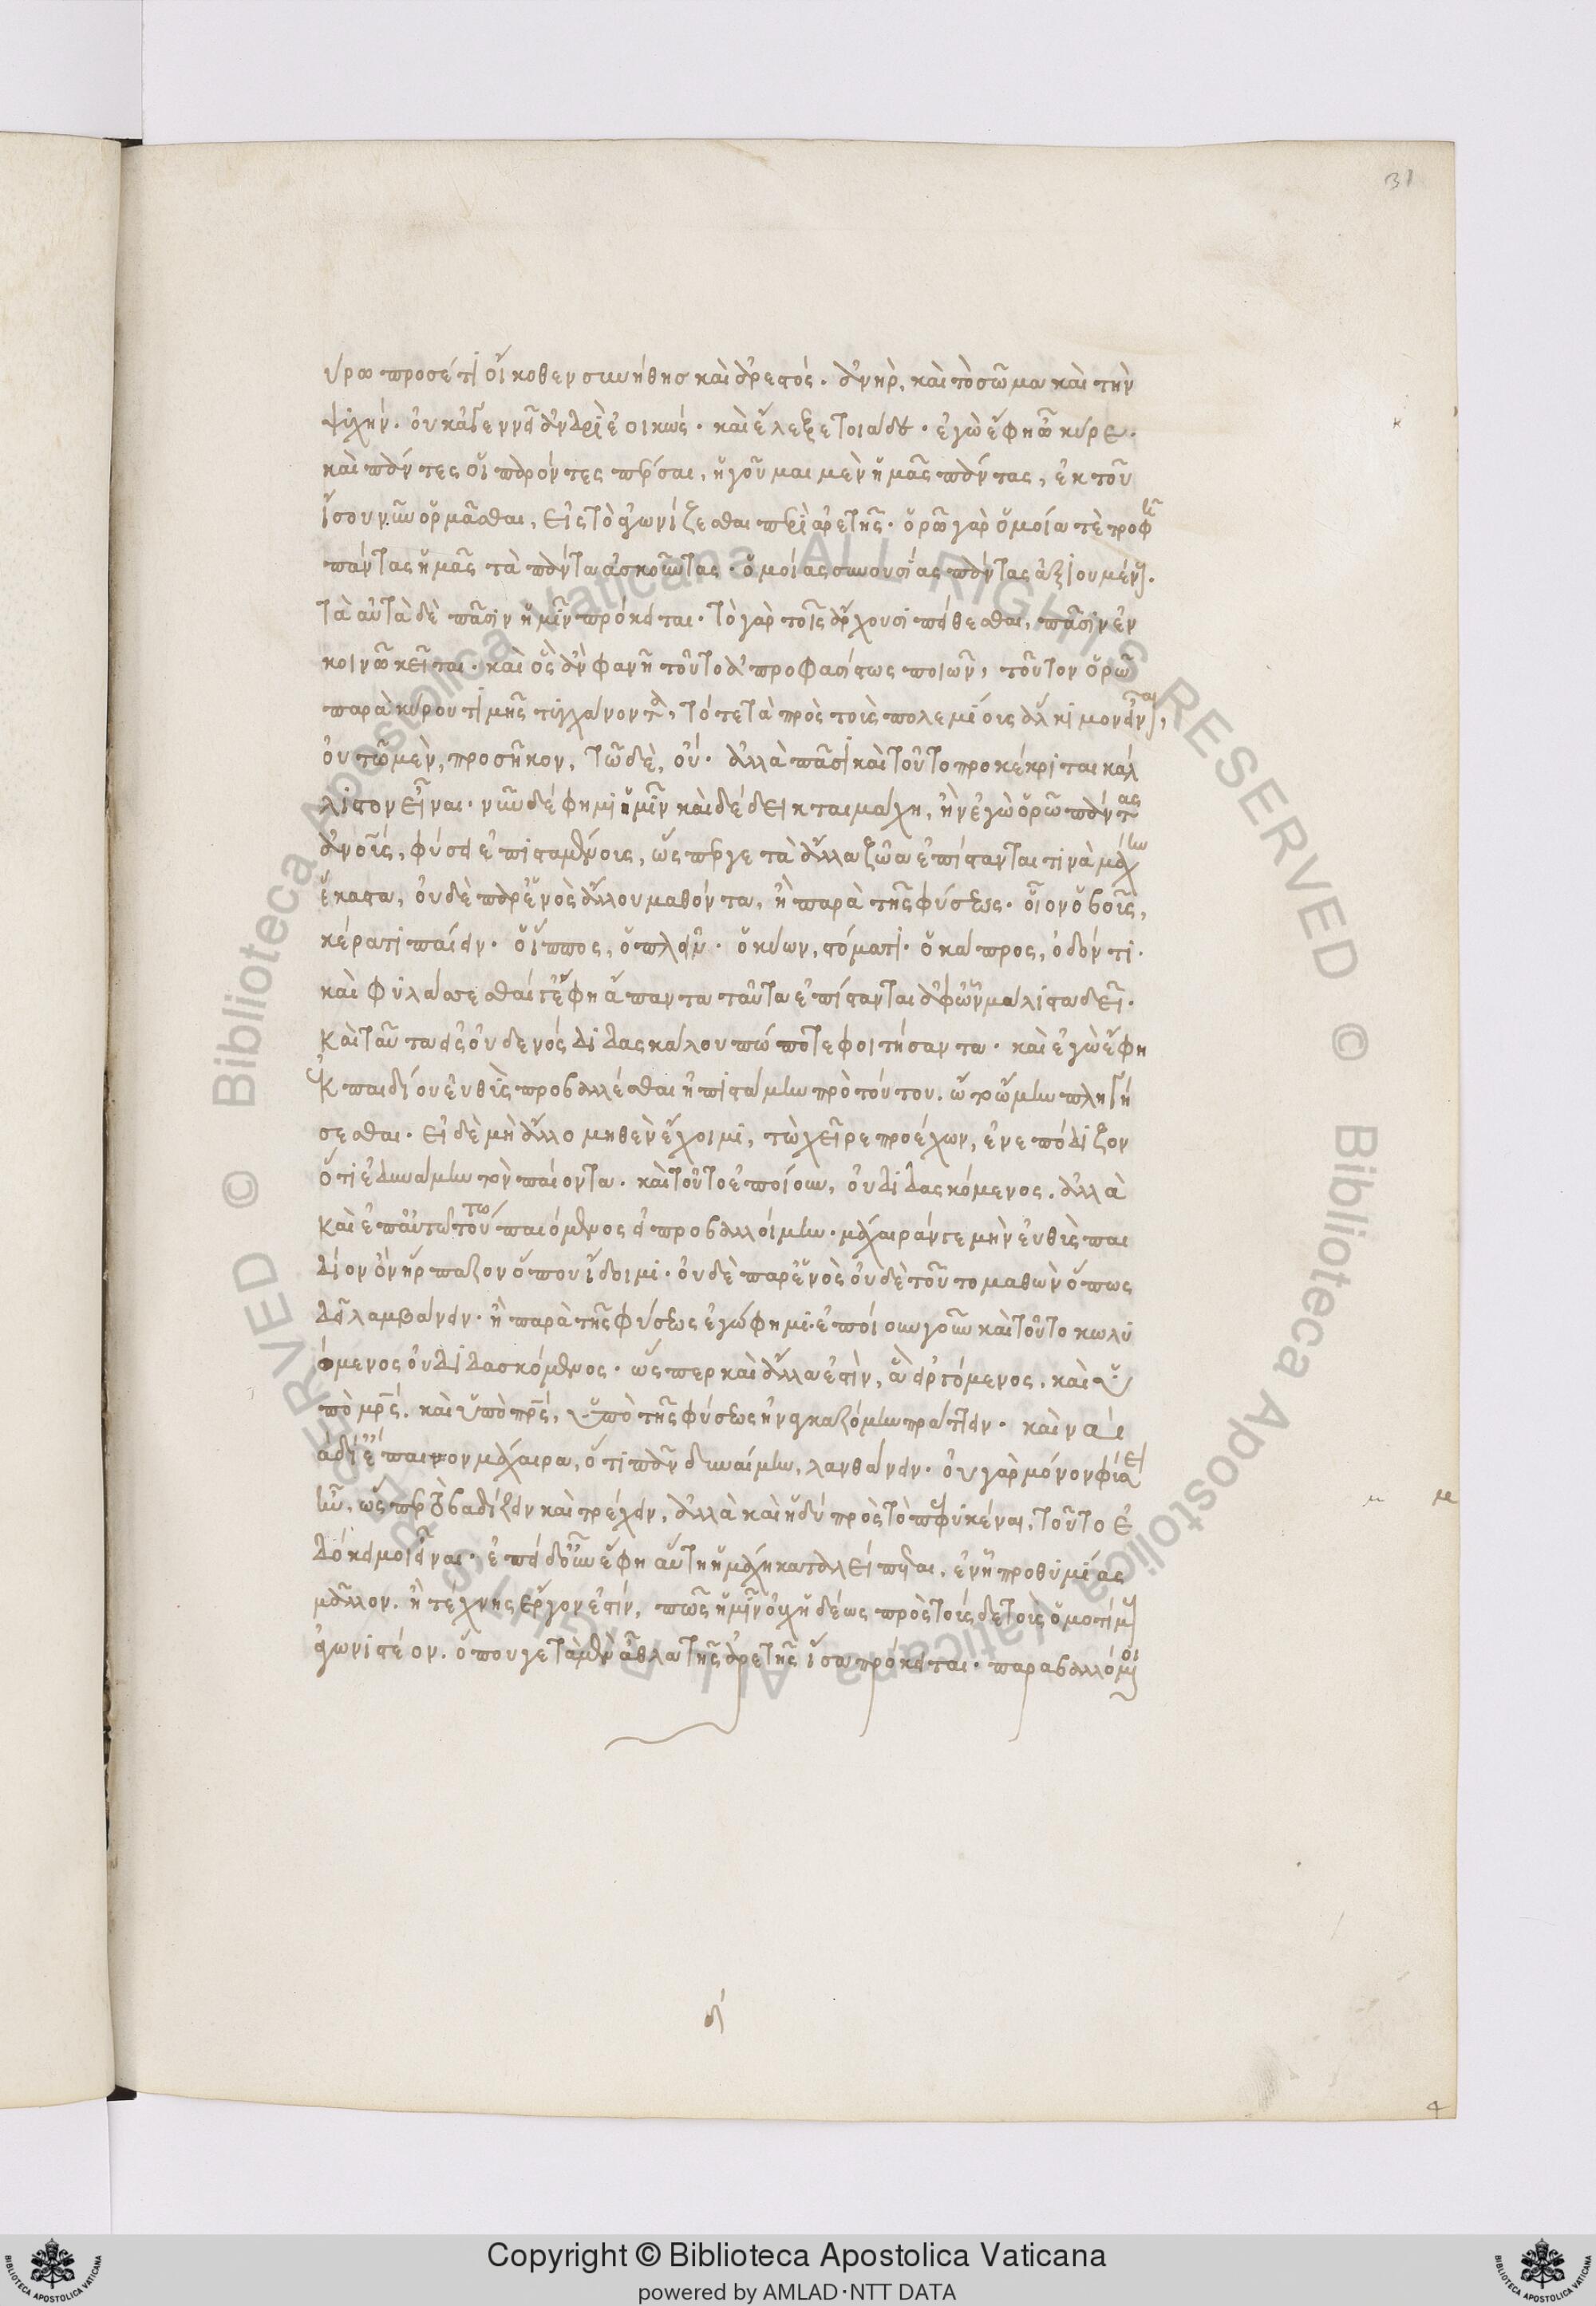 31
ύρω προσέτι οἴκοθεν συνήθης καὶ ἀρεστός. ἀνὴρ, καὶ τὸ σῶμα καὶ τὴν
ψυχήν. οὐκ ἀγεννεῖ ἀνδρὶ ἐοικώς. καὶ ἔλεξε τοιάδε. ἐγὼ ἔφη ὦ κῦρε.
καὶ πάντες οἱ παρόντες πέρσαι, ἡγοῦμαι μὲν ἡμᾶς πάντας, ἐκ τοῦ
ἴσου νῦν ὁρμᾶσθαι, εἰς τὸ ἀγωνίζεσθαι περὶ ἀρετῆς. ὁρῶ γὰρ ὁμοία τὲ τροφῇ
πάντας ἡμᾶς τὰ πάντα ἀσκοῦντας. ὁμοίας συνουσίας πάντας ἀξιουμένους.
τὰ αὐτὰ δὲ πᾶσιν ἡμῖν πρόκειται. τὸ γὰρ τοῖς ἄρχουσι πείθεσθαι, πᾶσιν ἐν
κοινῶ κεῖται. καὶ ὃς ἂν φανῆ τοῦτο ἀπροφασίστως ποιῶν, τοῦτον ὁρῶ
παρὰ κύρου τιμῆς τυγχάνοντα, τό τε τὰ πρὸς τοὺς πολεμίους ἄλκιμον εἶναι,
οὐ τῶ μὲν, προσῆκον, τῶ δὲ, οὔ. ἀλλὰ πᾶσι καὶ τοῦτο προκέκριται κάλ
λιστον εἶναι. νῦν δέ φημι ἡμῖν καὶ δέδεικται μάχη, ἣν ἐγὼ ὁρῶ πάντας
ἀνους, φύσει ἐπισταμένους, ὥσπερ γε τὰ ἄλλα ζῶα ἐπίστανταί τινα μάχην
ἕκαστα, οὐδὲ παρ' ἑνὸς ἄλλου μαθόντα, ἢ παρὰ τῆς φύσεως. οἷον ὁ βοῦς,
κέρατι παίειν. ὁ ἵππος, ὁπλῆ. ὁ κύων, στόματι. ὁ κάπρος, ὀδόντι.
καὶ φυλάσσεσθαί γ' ἔφη ἅπαντα ταῦτα ἐπίστανται ἀφ' ὧν μάλιστα δεῖ.
καὶ ταῦτα εἰς οὐδενὸς διδασκάλου πώποτε φοιτήσαντα. καὶ ἐγὼ ἔφη
ἐκ παιδίου εὐθὺς προβάλλεσθαι ἠπιστάμην πρὸ τούτου. ὧ ᾤμην πληγή
σεσθαι. εἰ δὲ μὴ ἄλλο μηθὲν ἔχοιμι, τὼ χεῖρε προέχων, ἐνεπόδιζον
ὅτι ἐδυνάμην τὸν παίοντα. καὶ τοῦτο ἐποίουν, οὐ διδασκόμενος. ἀλλὰ
καὶ ἐπ' αὐτῶ τούτω παιόμενος εἰ προβαλλοίμην. μάχαιράν γε μὴν εὐθὺς παι
δίον ὢν ἥρπαζον ὅπου ἴδοιμι. οὐδὲ παρ' ἑνὸς οὐδὲ τοῦτο μαθὼν ὅπως
δεῖ λαμβάνειν. ἢ παρὰ τῆς φύσεως ἐγώ φημι. ἐποίουν γοῦν καὶ τοῦτο κωλυ
όμενος οὐ διδασκόμενος. ὥσπερ καὶ ἄλλα ἐστὶν, ἃ εἰργόμενος. καὶ ὑ
πὸ μρς. καὶ ὑπὸ πρς, ὑπὸ τῆς φύσεως ἠναγκαζόμην πράττειν. καὶ ναὶ
ἔπαιον μάχαιρα, ὅτι πᾶν δυναίμην, λανθάνειν. οὐ γὰρ μόνον φύσει
ἦν, ὥσπερ τὸ βαδίζειν καὶ τρέχειν, ἀλλὰ καὶ ἡδὺ πρὸς τὸ πεφυκέναι, τοῦτο ἐ
δόκει μοι εἶναι. ἐπεὶ δ' οὖν ἔφη αὕτη ἡ μάχη καταλείπεται. ἐν ἧ προθυμίας
μᾶλλον. ἢ τέχνης ἔργον ἐστίν, πῶς ἡμῖν οὐχ ἡδέως πρὸς τούσδε τοὺς ὁμοτίμους
ἀγωνιστέον. ὅπου γε τὰ μὲν ἆθλα τῆς ἀρετῆς ἴσα πρόκειται. παραβαλλόμενοι
δ'
4
Copyright © Biblioteca Apostolica Vaticana
powered by AMLAD·NTT DATA